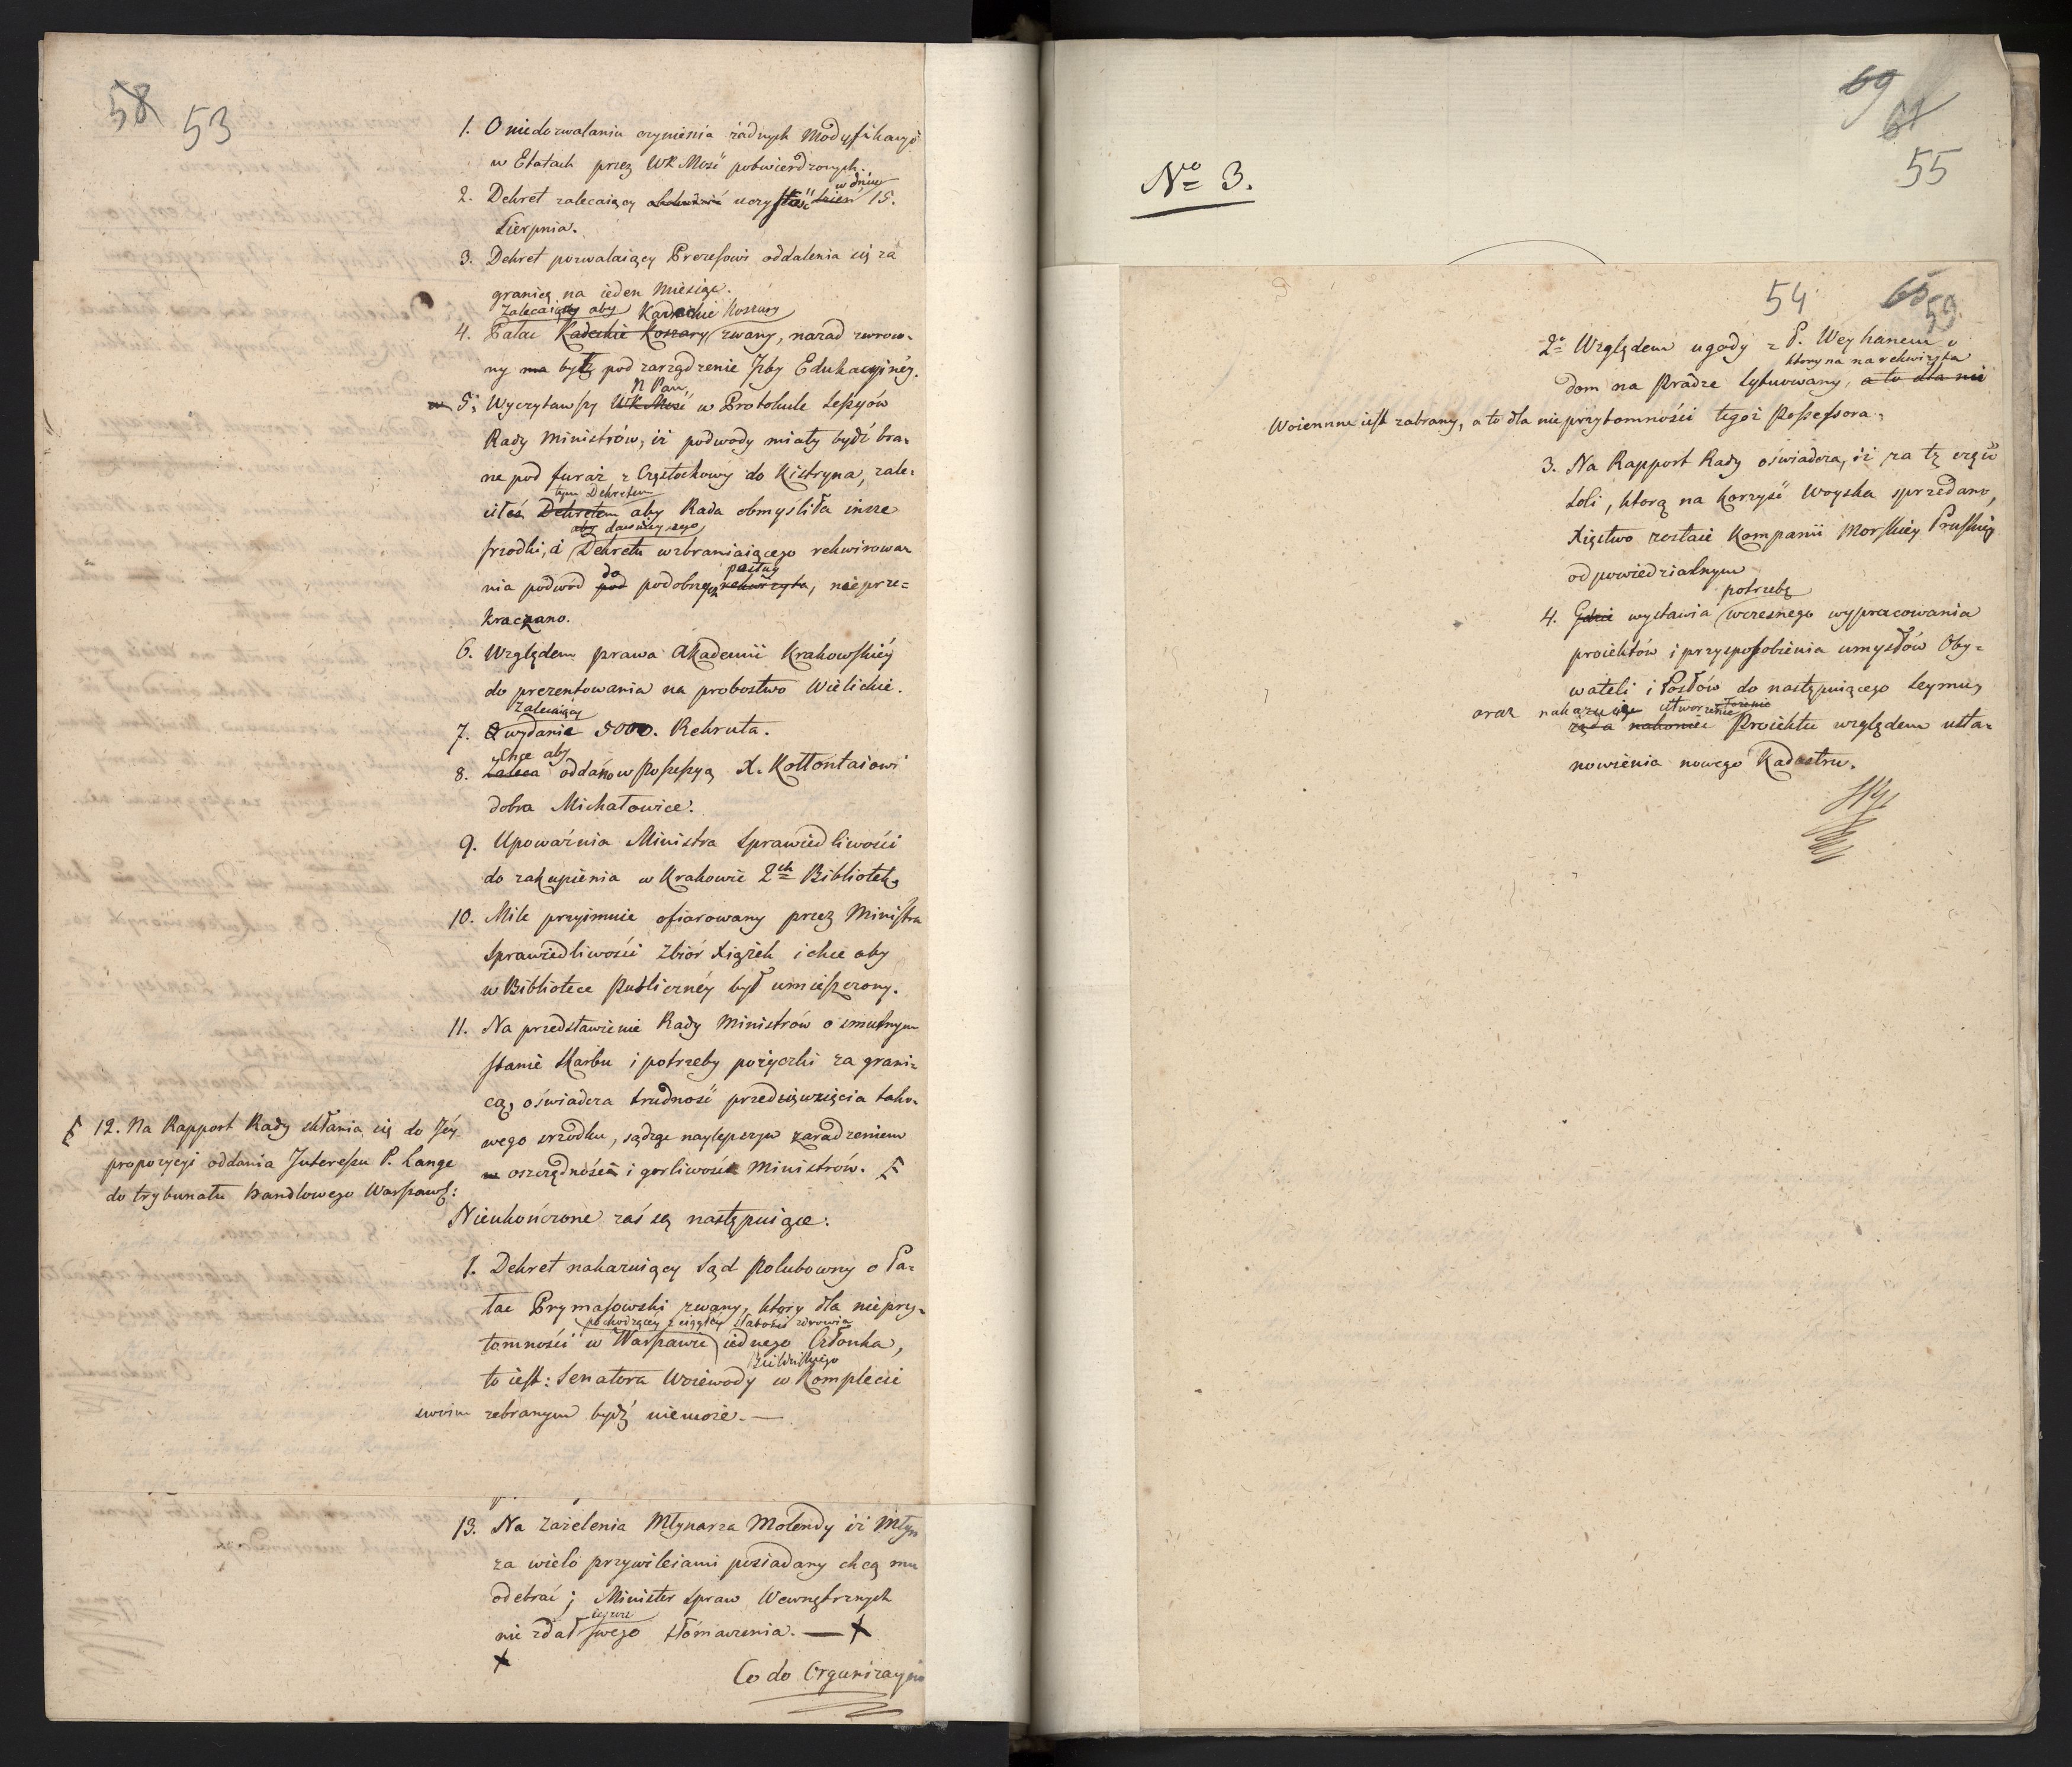 58 53
1. O niedozwalaniu czynienia żadnych Modyfikacyi
w Etatach przez WK Mość potwierdzonych.
w dniu
2. Dekret zalecaiący uczystość dzień 15.
Sierpnia.
3. Dekret pozwalaiący Prezesowi oddalenia się za
granicę na ieden Miesiąc.
Zalecaiący aby Kadeckie Koszary
4. Pałac Kadeckie Koszary zwany, nazad zwroco-
ny ma być pod zarządzenie Izby Edukacyinéy.
N Pan
5. Wyczytawszy WK Mość w Protokule Sessyów
Rady Ministrów, iż podwody miały bydź bra-
ne pod furaż z Częstochowy do Kistryna, zale-
tym Dekretem
ciłeś Dekretem aby Rada obmyśliła insze
aby dawnieyszego
srzodki, i Dekretu wzbraniaiącego rekwirowa-
do posług
nia podwód pod podobnych rekwizyta, nieprze-
kraczano.
6. Względem prawa Akademii Krakowskiéy
do prezentowania na probostwo Wielickie.
Zalecaiący
7. O wydanie 5000. Rekruta.
Chce aby
8. Zaleca oddano w Possessyą X. Kołłontaiowi
dobra Michałowice.
9. Upoważnia Ministra Sprawiedliwości
do zakupienia w Krakowie 2ch Bibliotek,
10. Mile przyimuie ofiarowany przez Ministra
Sprawiedliwości Zbiór Xiążek i chce aby
w Bibliotece Publicznéy był umieszczony.
11. Na przedstawienie Rady Ministrów o smutnym
stanie Skarbu i potrzeby pożyczki za grani-
cą, oświadcza trudność przedsięwzięcia tako-
wego srzodku, sądząc naylepszym zaradzeniem
w oszczędności i gorliwości Ministrów.
12. Na Rapport Rady skłania się do Jéy
propozycyi oddania Interessu P. Lange
do trybunału handlowego Warszaws:
Nieukończone zaś są następuiące:
1. Dekret nakazuiący Sąd Polubowny o Pa-
łac Prymasowski zwany, który dla nieprzy-
pochodzącey z ciągłey słabości zdrowia
tomności w Warszawie iednego Członka,
Bielińskiego
to iest: Senatora Woiewody w Komplecie
swoim zebranym bydź niemoże. —
13. Na zażelenia Młynarza Molendy iż Młyn
za wielo przywileiami posiadany chcą mu
odebrać; Minister Spraw Wewnętrznych
ieszcze
nie zdał swego tłómaczenia. — X
X
Co do Organizacyi
69
61
55
No 3.
54 65 59
2o Względem ugody z P. Weyhanem o
który na na rekwizyta
dom na Pradze sytuowany, a to dla nie
Woienne iest zabrany, a to dla nieprzytomności tegoż Possessora.
3. Na Rapport Rady oświadcza, iż za tę część
Soli, którą na korzyść Woyska sprzedano,
Xięstwo zostaie Kompanii Morskiey Pruskiey
odpowiedzialnym
potrzebę
4. Gdzie wystawia wczesnego wypracowania
proiektów i przysposobienia umysłów Oby-
wateli i Posłów do następuiącego Seymu,
oraz nakazuie utworzenie
Proiektu względem usta-
nowienia nowego Kadastru.